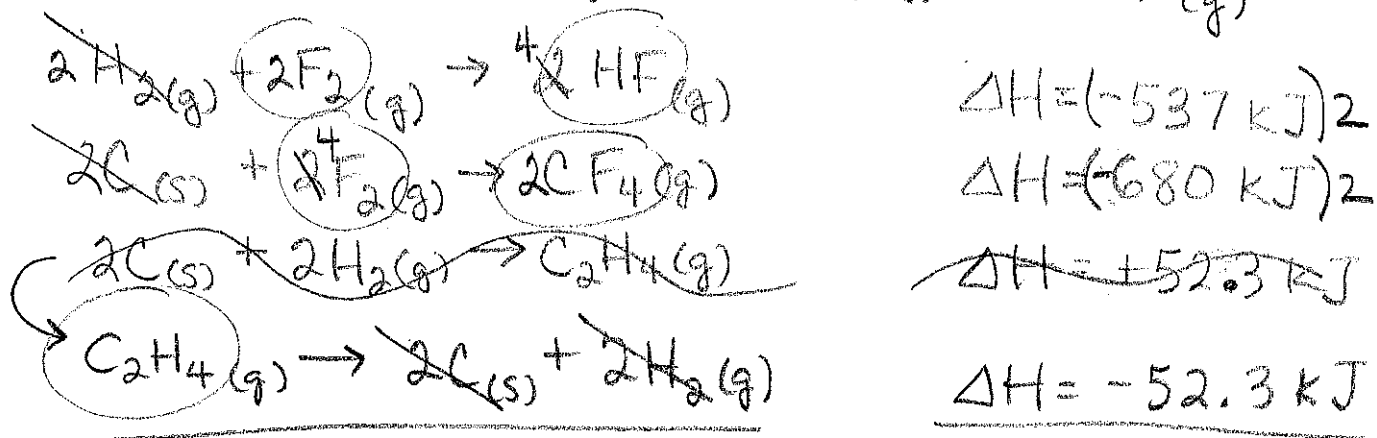 (g)
2H₂(g) + 2F₂(g) → 4 2 HF(g) ΔH=(-537 kJ)2
2C(s) + 2 4 F₂(g) → 2CF₄(g) ΔH=(-680 kJ)2
2C(s) + 2H₂(g) → C₂H₄(g) ΔH = +52.3 kJ
C₂H₄(g) → 2C(s) + 2H₂(g) ΔH = -52.3 kJ